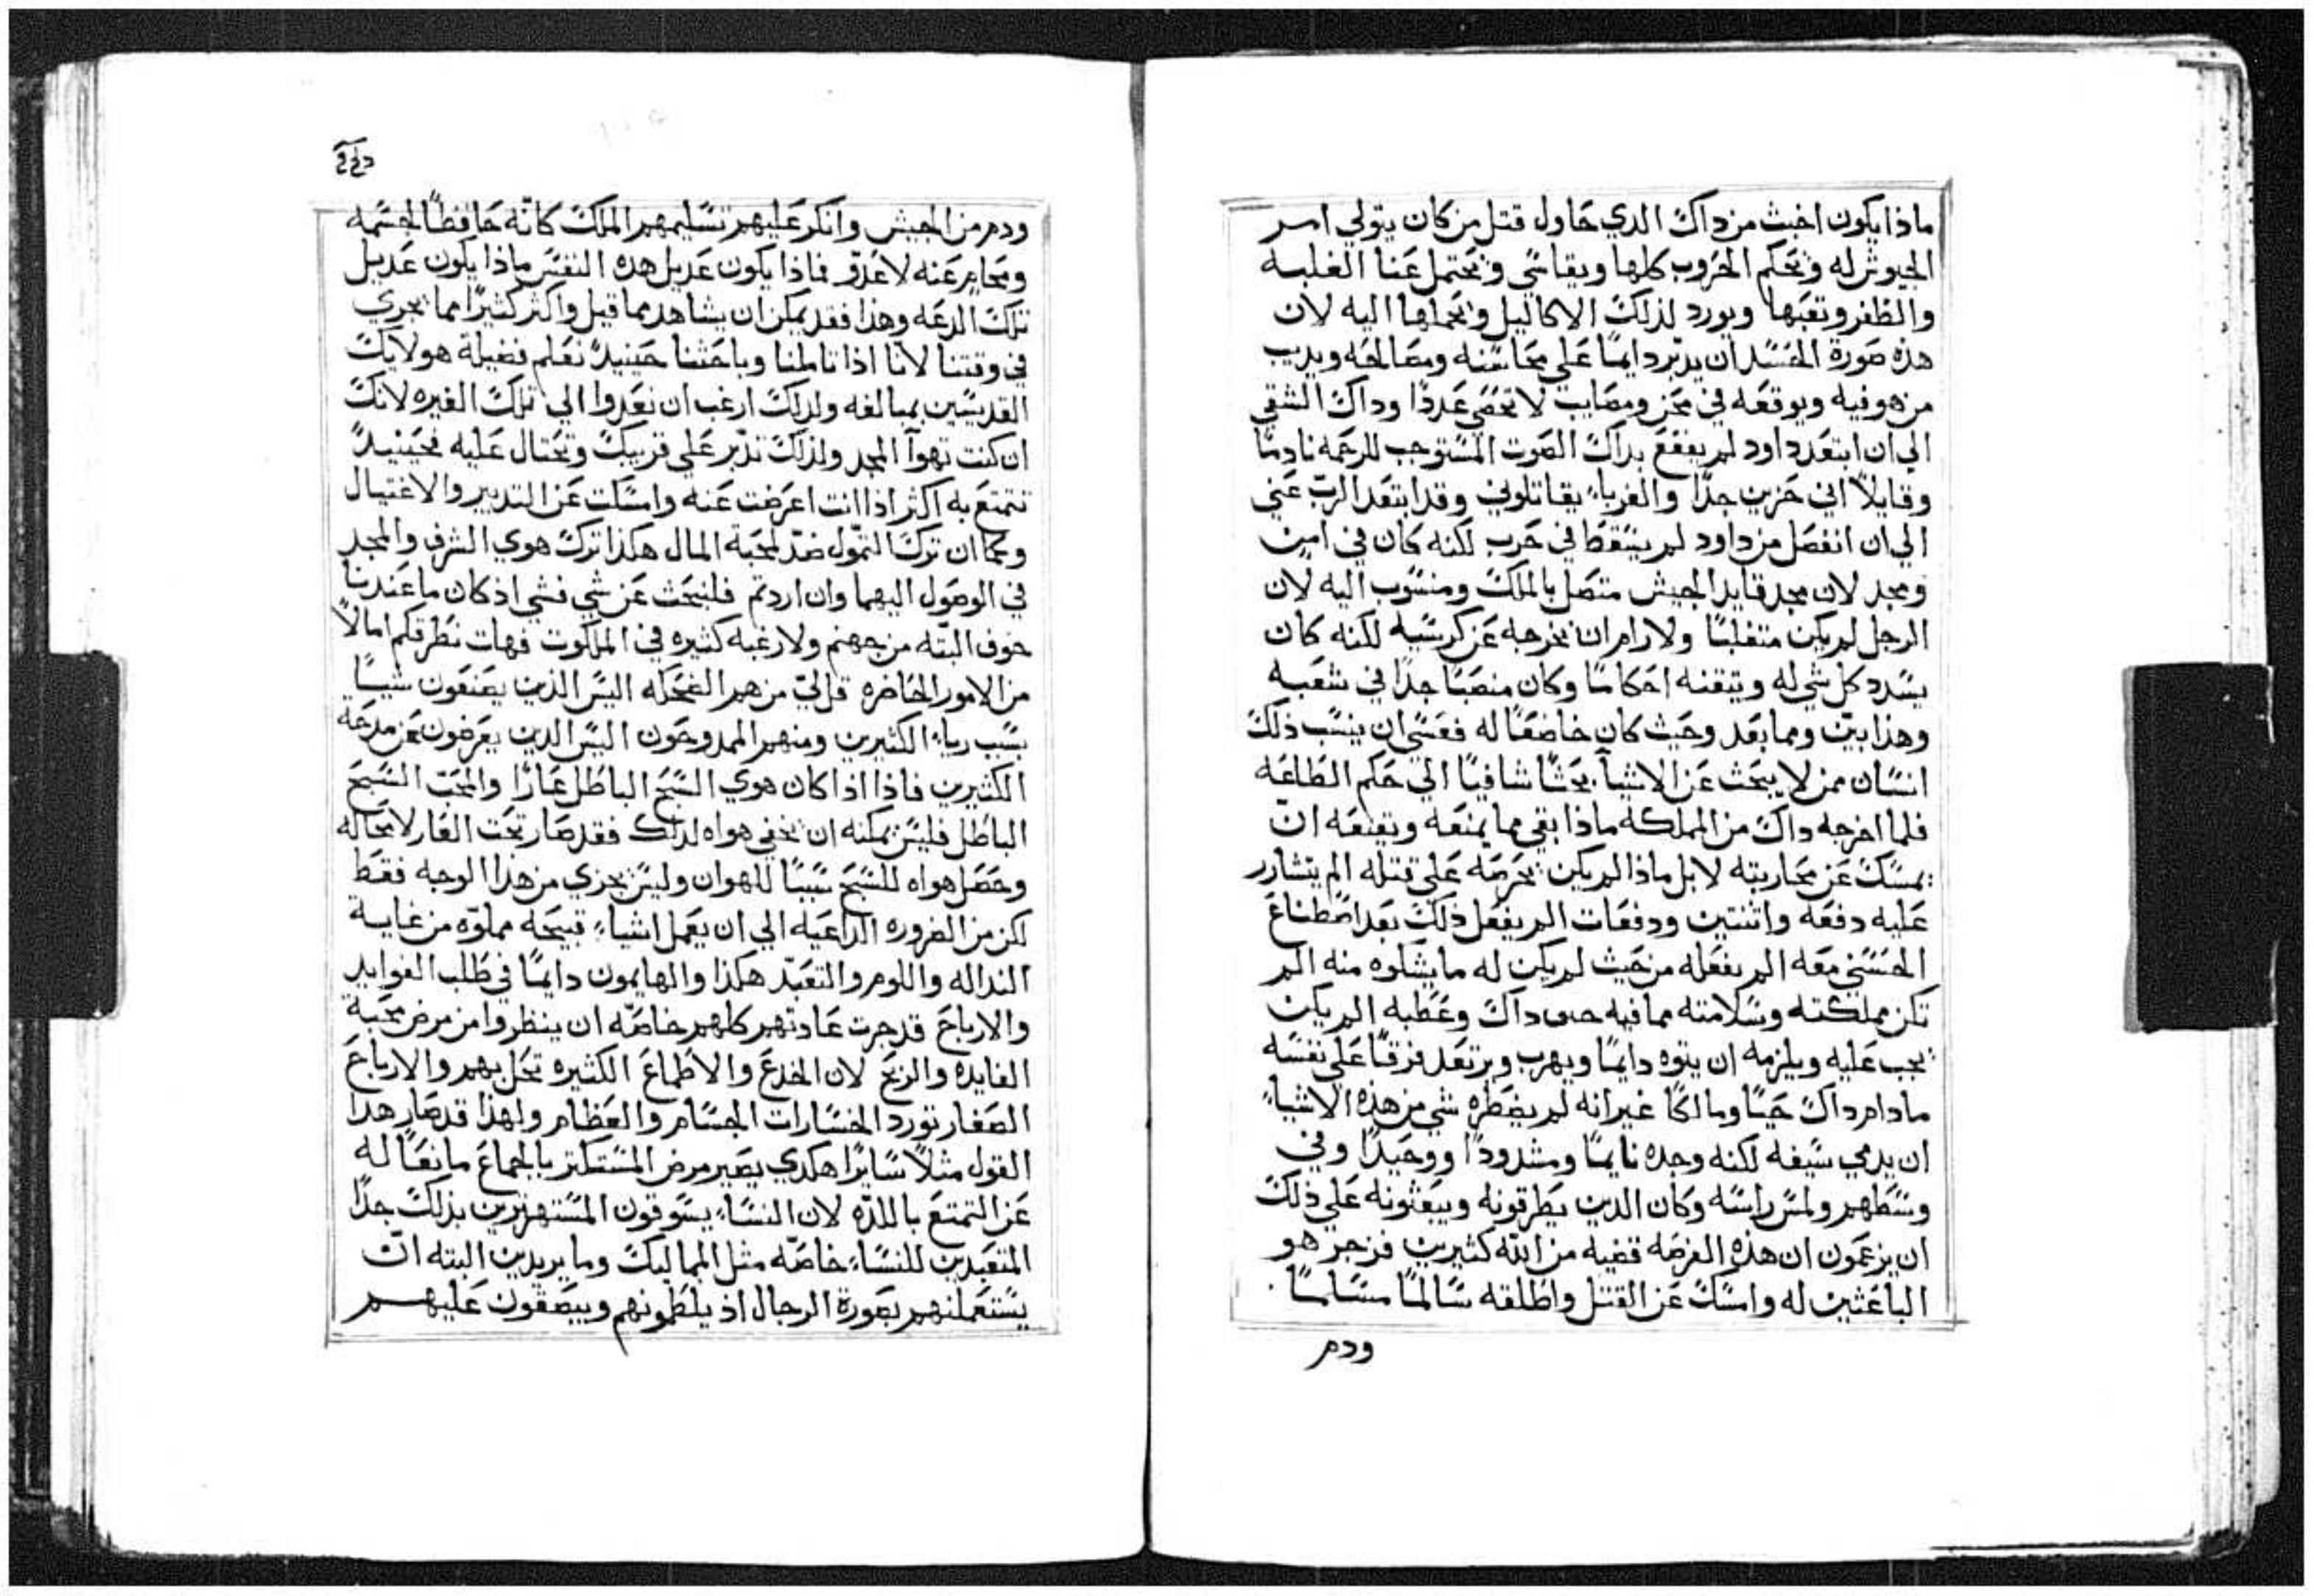 ماذا يكون اخبث من داك الدي حاول قتل من كان يتولي امر
الجيوش له ويحكم الحروب كلها ويقاسي ويحتمل عنا الغلبه
والظفر وتعبها ويورد لذلك الاكاليل ويحملها اليه لان
هذه صورة الحسد ان يدبر دايمًا علي محاسنه ومصالحه ويديب
من هو فيه ويوقعه في محن ومصايب لا تحصي عددًا وداك الشقي
الي ان ابتعد داود لم يفقع بداك الصوت المستوجب للرحمه نادمًا
وقايلاً اني حزين جدًا والغرباء يقاتلوني وقد ابتعد الرب عني
الي ان انفصل من داود لم يسقط في حرب لكنه كان في امن
ومجد لان مجد قايد الجيش متصل بالملك ومنسوب اليه لان
الرجل لم يكن متغلبًا ولا رام ان يخرجه عن كرسيه لكنه كان
يسدد كل شي له ويتقنه احكامًا وكان منصبًا جدًا في شعبه
وهذا بين ومما بعد وحيث كان خاضعًا له فعسي ان ينسب ذلك
انسان ممن لا يبحث عن الاشيآ بحثًا شافيًا الي حكم الطاعه
فلما اخرجه داك من المملكه ماذا بقي مما يمنعه ويقنعه ان
يمسك عن محاربته لا بل ماذا لم يكن يحرصه علي قتله الم يتشارر
عليه دفعه واثنتين ودفعات الم يفعل ذلك بعد اصطناع
الحسني معه الم يفعله من حيث لم يكن له ما يشكوه منه الم
تكن مملكته وسلامته مما فيه داك وعطبه الم يكن
يجب عليه ويلزمه ان يتوه دايمًا ويهرب ويرتعد فرقًا علي نفسه
ما دام داك حيًا ومالكًا غير انه لم يضطره شي من هذه الاشياء
ان يدمي سيفه لكنه وجده نايمًا ومشدودًا ووحيدًا وفي
وسطهم ولمس راسه وكان الدين يطرقونه ويبعثونه علي ذلك
ان يزعمون ان هذه الفرصه قضيه من الله كثيرين فزجر هو
الباعثين له وامسك عن القتل واطلقه سالمًا مسالمًا
ودم
ودم من الجيش وانكر عليهم تسليمهم الملك كانه حافظًا لجسمه
ومحامٍ عنه لا عدو فاذا يكون عديل هذه النفس ماذا يكون عديل
تلك الدعه وهذا فقد يمكن ان يشاهد مما قيل واكثر كثيرًا مما يجري
في وقتنا لانا اذا تاملنا وباحثنا حينيدً نعلم فضيلة هولايك
القديسين بمبالغه ولدلك ارغب ان تعدوا الي تلك الغيره لانك
ان كنت تهوآ المجد ولذلك تدبر علي قريبك وتحتال عليه فحينيدً
تتمتع به اكثر اذا انت اعرضت عنه وامسكت عن التدبير والاغتيال
وكما ان ترك التمول ضد لمحبة المال هكذا ترك هوي الشرف والمجد
في الوصول اليهما وان اردتم فلنبحث عن شي فشي اذ كان ما عندنا
خوف البته من جهنم ولا رغبه كثيره في الملكوت فهات نطرقكم امالاً
من الامور الحاضره قل لي من هم الضحكه اليس الذين يصنعون شيًا
بسبب رياء الكثيرين ومنهم الممدوحون اليس الدين يعرضون عن مدحة
الكثيرين فاذا اذا كان هوي السبح الباطل عارًا والمحب السبح
الباطل فليس يمكنه ان يخفي هواه لدلك فقد صار تحت العار لا محاله
وحصل هواه للسبح سببًا للهوان وليس يجزي من هذا الوجه فقط
لكن من الضروره الداعيه الي ان يعمل اشياء قبيحه مملوه من غاية
النداله واللوم والتعبد هكذا والهايمون دايمًا في طلب الفوايد
والارباح قد جرت عادتهم كلهم خاصه ان ينظروا من مرض محبة
الفايده والربح لان الخدع والاطماع الكثيره تحل بهم والارباح
الصغار تورد الخسارات الجسام والعظام ولهذا قد صار هدا
القول مثلاً سايرًا هكدي يصير مرض المستكتر بالجماع مانعًا له
عن التمتع باللده لان النساء يسوقون المستهزين بذلك جدًا
المتعبدين للنساء خاصه مثل المماليك وما يريدين البته ان
يستعملنهم بصورة الرجال اذ يلطمونهم ويبصقون عليهم